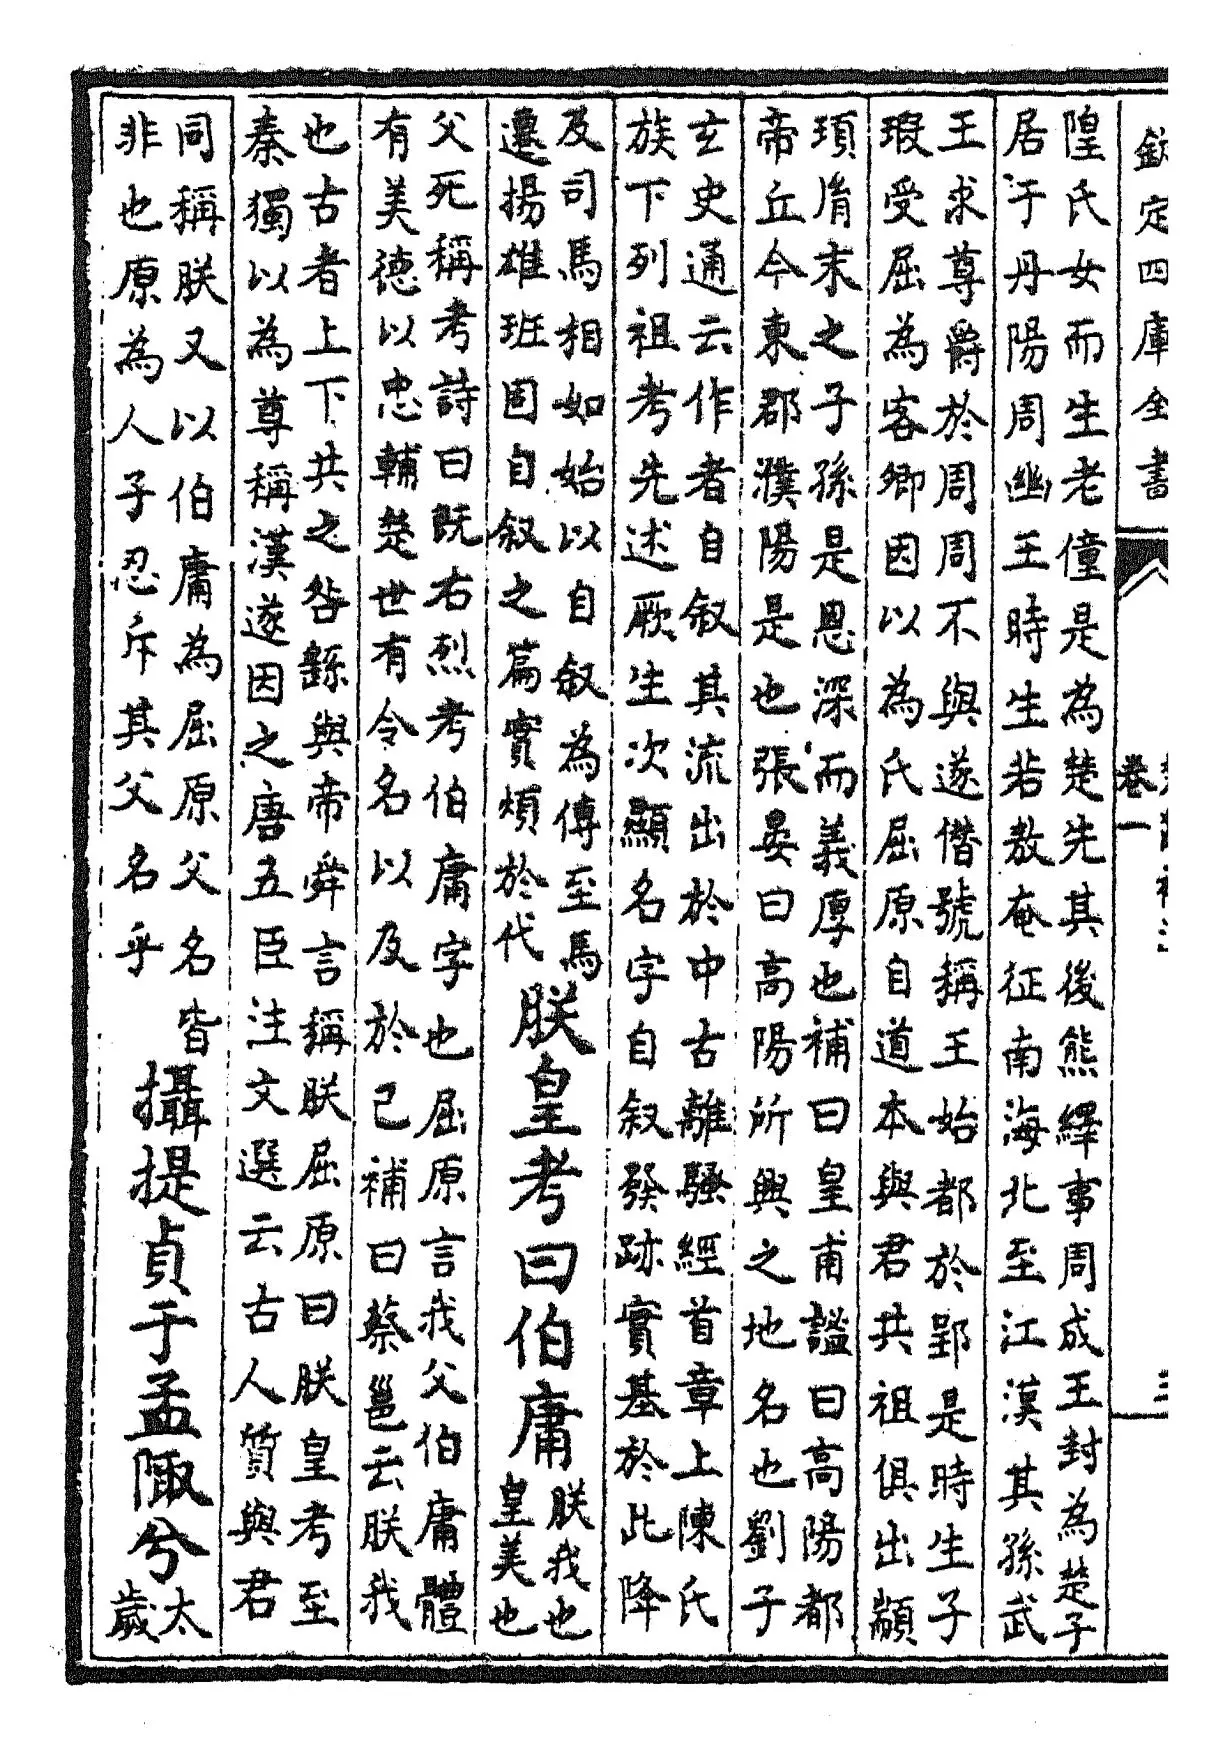 欽定四庫全書
卷一
隍氏女而生老僮是為楚先其後熊繹事周成王封為楚子
居于丹陽周幽王時生若敖奄征南海北至江漢其孫武
王求尊爵於周周不與遂僭號稱王始都於郢是時生子
瑕受屈為客卿因以為氏屈原自道本與君共祖俱出顓
頊胤末之子孫是恩深而義厚也補曰皇甫謐曰高陽都
帝丘今東郡濮陽是也張晏曰高陽所興之地名也劉子
玄史通云作者自叙其流出於中古離騷經首章上陳氏
族下列祖考先述厥生次顯名字自叙發跡實基於此降
及司馬相如始以自叙為傳至馬
遷揚雄班固自叙之篇實煩於代
朕皇考曰伯庸
朕我也
皇美也
父死稱考詩曰既右烈考伯庸字也屈原言我父伯庸體
有美德以忠輔楚世有令名以及於己補曰蔡邕云朕我
也古者上下共之咎繇與帝舜言稱朕屈原曰朕皇考至
秦獨以為尊稱漢遂因之唐五臣注文選云古人質與君
同稱朕又以伯庸為屈原父名皆
非也原為人子忍斥其父名乎
攝提貞于孟陬兮
太
歲